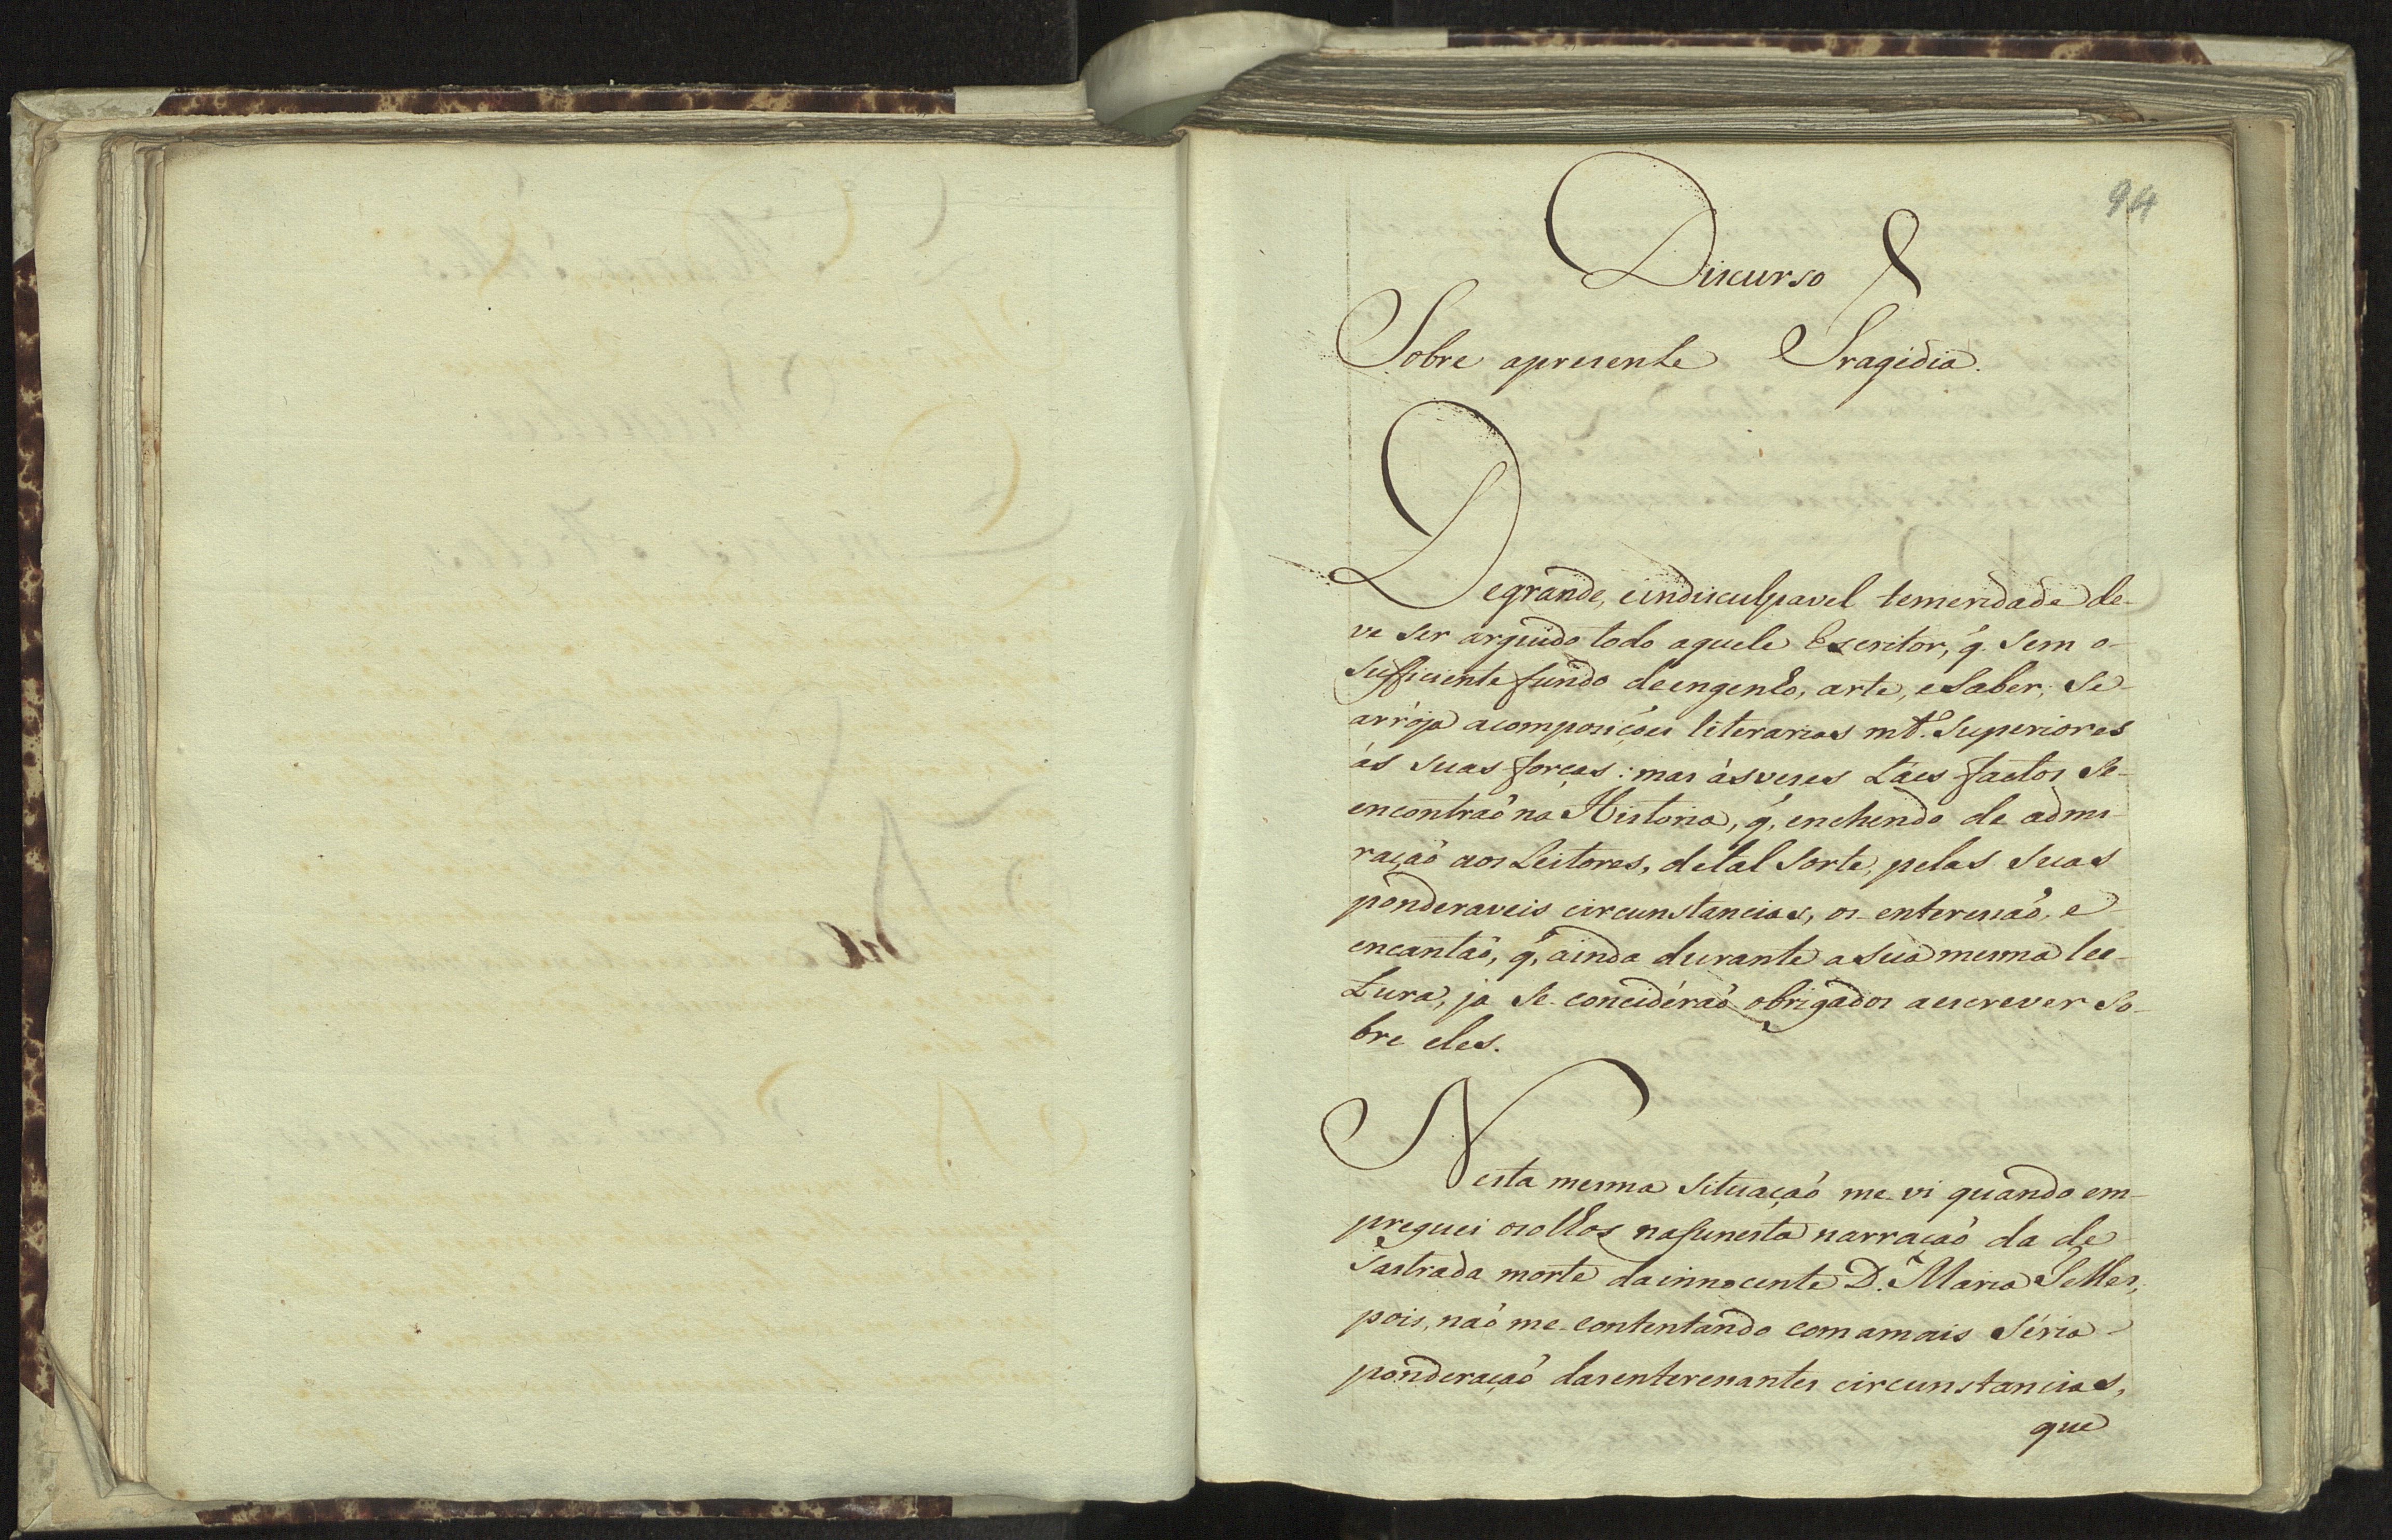 94
Discurso
Sobre apresente Tragidia.
Degrande, eindisculpavel temeridade de-
ve ser arguido todo aquele Escritor, q̃. sem o-
sufficiente fundo deengenho, arte, esaber, se-
arrója acomposiçóes literarias mt.º superiores
ás suas forças: mas ásveses táes factos se-
encontraõ na Historia, q̃, enchendo de admi-
raçaõ aos Leitores, detal sorte, pelas suas
ponderaveis circunstancias, os enteressaõ, e
encantaõ, q̃, ainda durante asua mesma lec-
tura, ja se concidéraõ obrigados aescrever so-
bre eles.
Nesta mesma situaçaõ me vi quando em-
preguei osolhos nafunesta narraçaõ da de
sastrada morte dainnocente D. Maria Telles,
pois, naõ me contentando comamais séria
ponderaçaõ dasenteressantes circunstancias,
que